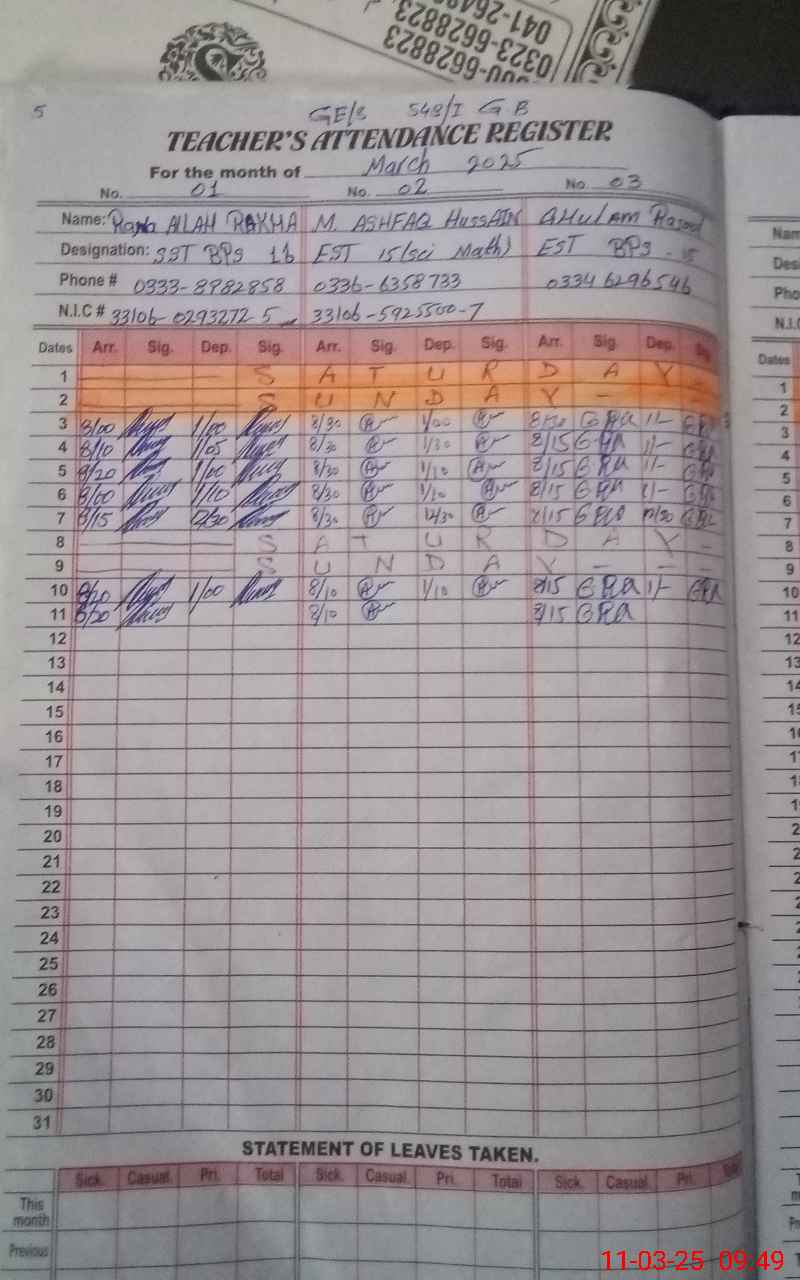 041-264
0323-6628823
6628823
5
GE/S 548/I G B
TEACHER'S ATTENDANCE REGISTER
For the month of March 2025
No. 01 No. 02 No. 03
Name: Rana ALLAH RAKHA M. ASHFAQ HUSSAIN GHULAM Rasool
Designation: SST BPS 16 EST 15 (sci Math) EST BPS - 15
Phone # 0333-8982858 0336-6358733 0334 6296546
N.I.C # 33106-0293272 5 33106-5925500-7
Dates Arr. Sig. Dep. Sig. Arr. Sig. Dep. Sig. Arr. Sig. Dep. Sig.
1 S A T U R D A Y -
2 S U N D A Y - -
3 8/00 1/00 8/30 1/00 GRA 1/-
4 8/10 1/05 8/30 1/30 8/15 GRA 1/-
5 8/20 1/00 8/30 1/10 8/15 GRA 1/-
6 8/00 1/10 8/30 8/15 GRA
7 8/15 12/30 8/30 12/30 8/15 GRA 12/30 GRA
8 S A T U R D A Y -
9 S U N D A Y - - -
10 8/20 1/00 8/10 1/10 8/15 GRA 1/- GRA
11 8/20 8/10 8/15 GRA
12
13
14
15
16
17
18
19
20
21
22
23
24
25
26
27
28
29
30
31
STATEMENT OF LEAVES TAKEN.
Sick. Casual. Pri. Total Sick. Casual. Pri. Total Sick. Casual. Pri.
This month
Previous
Dates
1
2
3
4
5
6
7
8
9
10
11
12
13
14
11-03-25 09:49